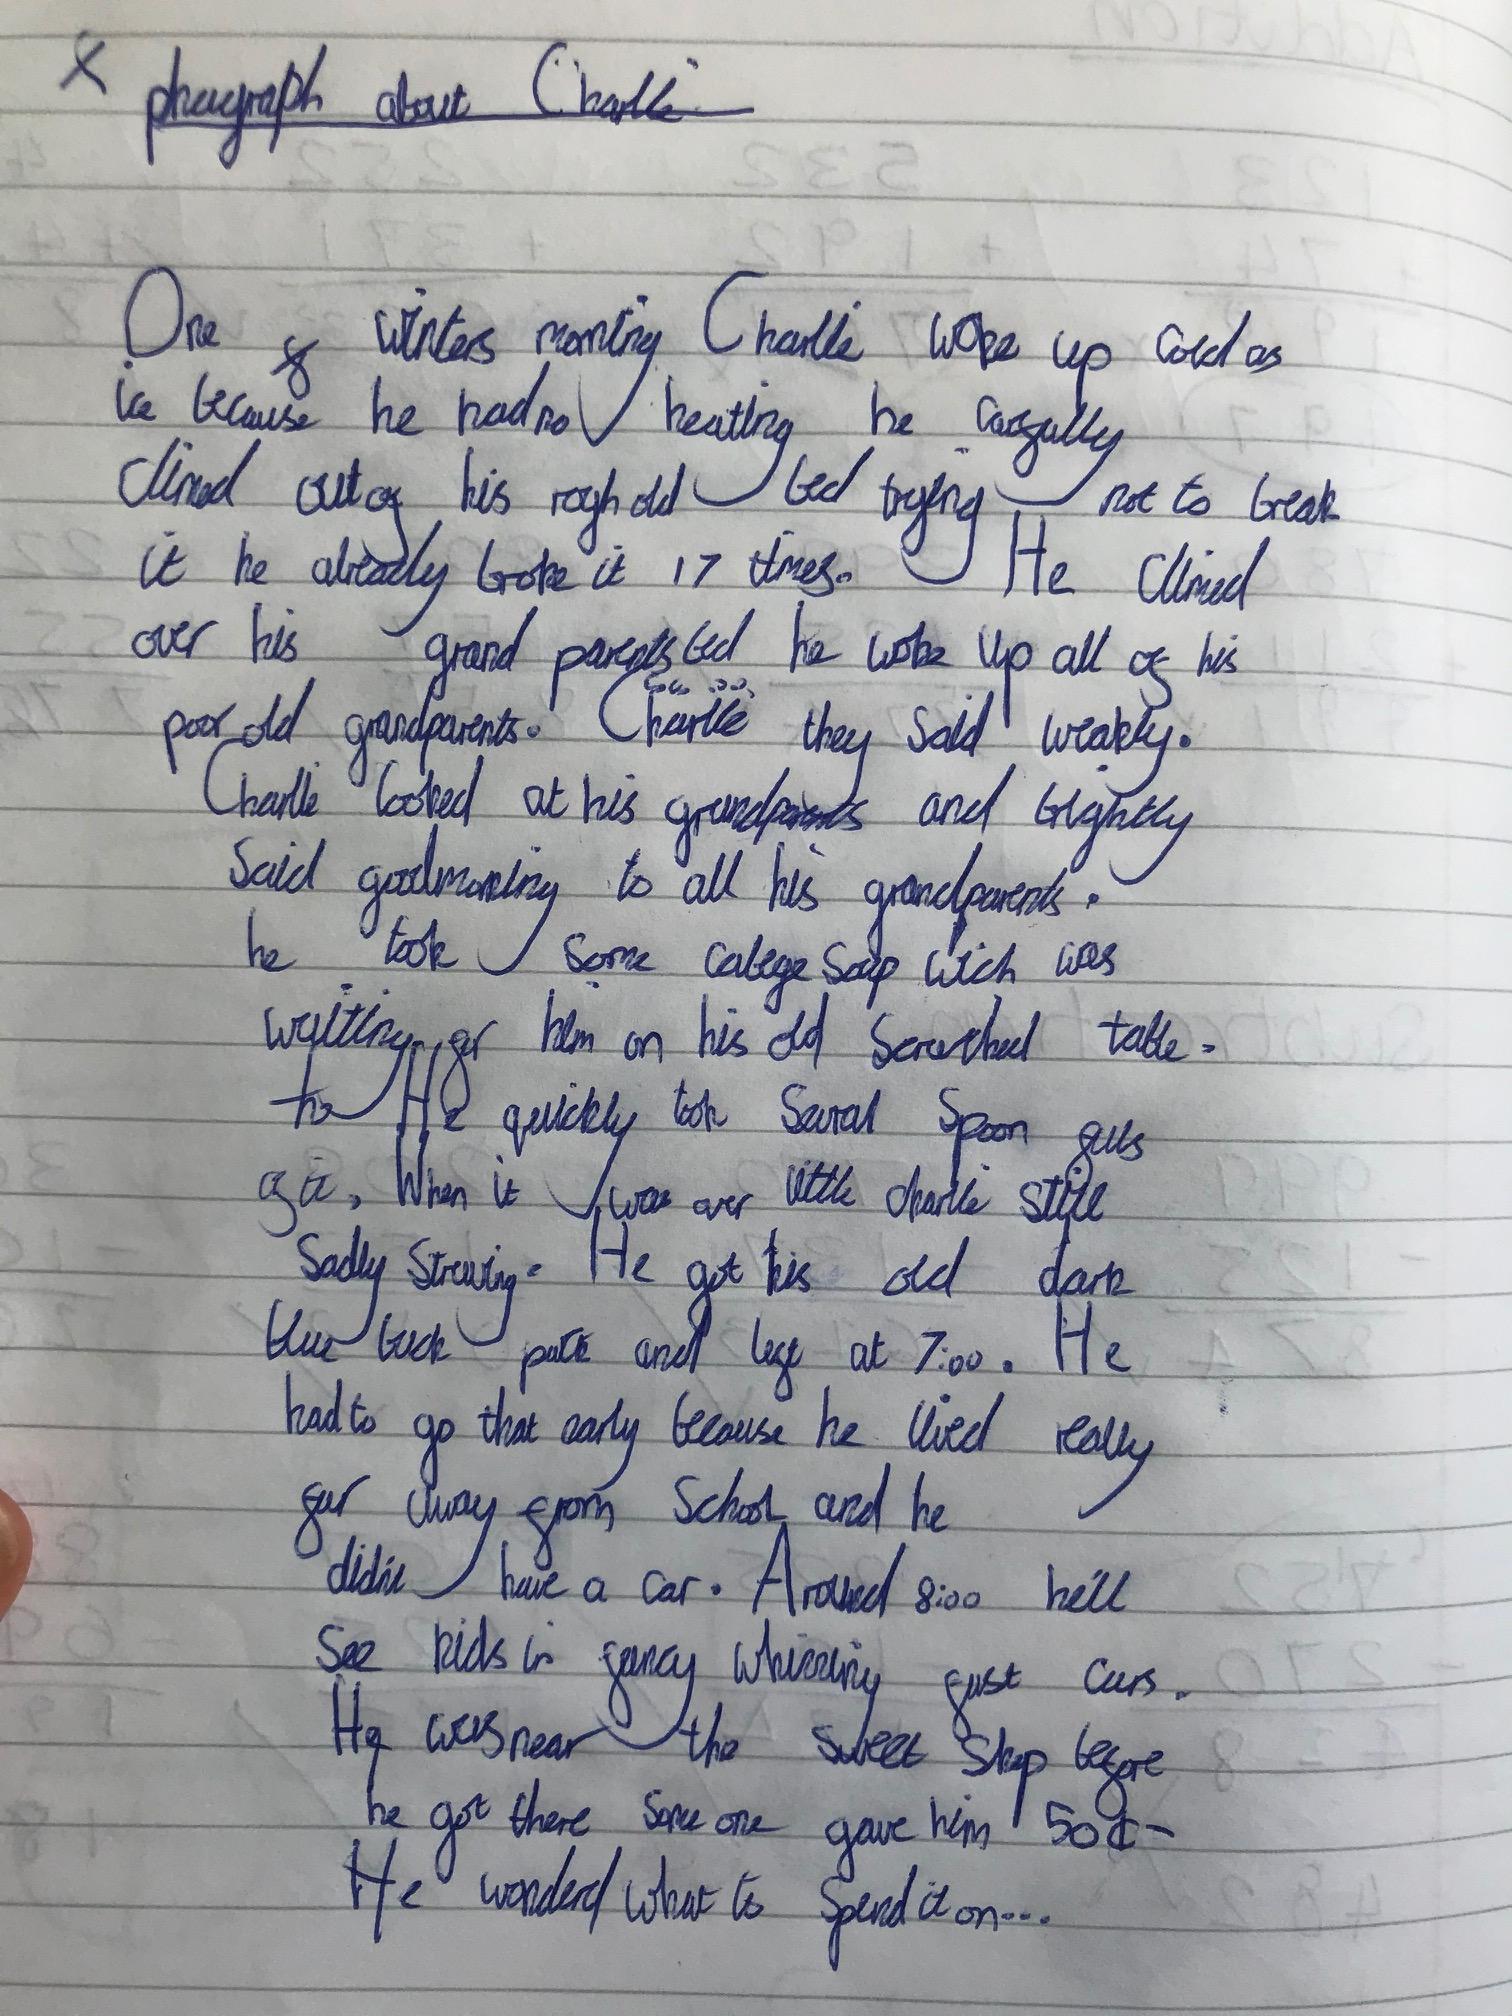 X phragraph about Charlie
One of winters morning Charlie woke up cold as
ice because he had no heating he carfully
climed out of his rogh old bed trying not to break
it he already broke it 17 times. He climed
over his grand parents bed he woke up all of his
poor old grandparents. "Charlie" they said weakly.
Charlie looked at his grandparents and brightly
said goodmorning to all his grandparents.
he took some cabege soup wich was
waiting for him on his old scratched table.
He quickly took sevral spoon fulls
of it, When it was over little charlie still
sadly strewing. He got his old dark
blue back pack and left at 7:00. He
had to go that early because he lived really
far away from school and he
didn't have a car. Around 8:00 he'll
see kids in fancy whirring fast cars.
He was near the sweet shop before
he got there some one gave him 50¢
He wonderd what to spend it on...